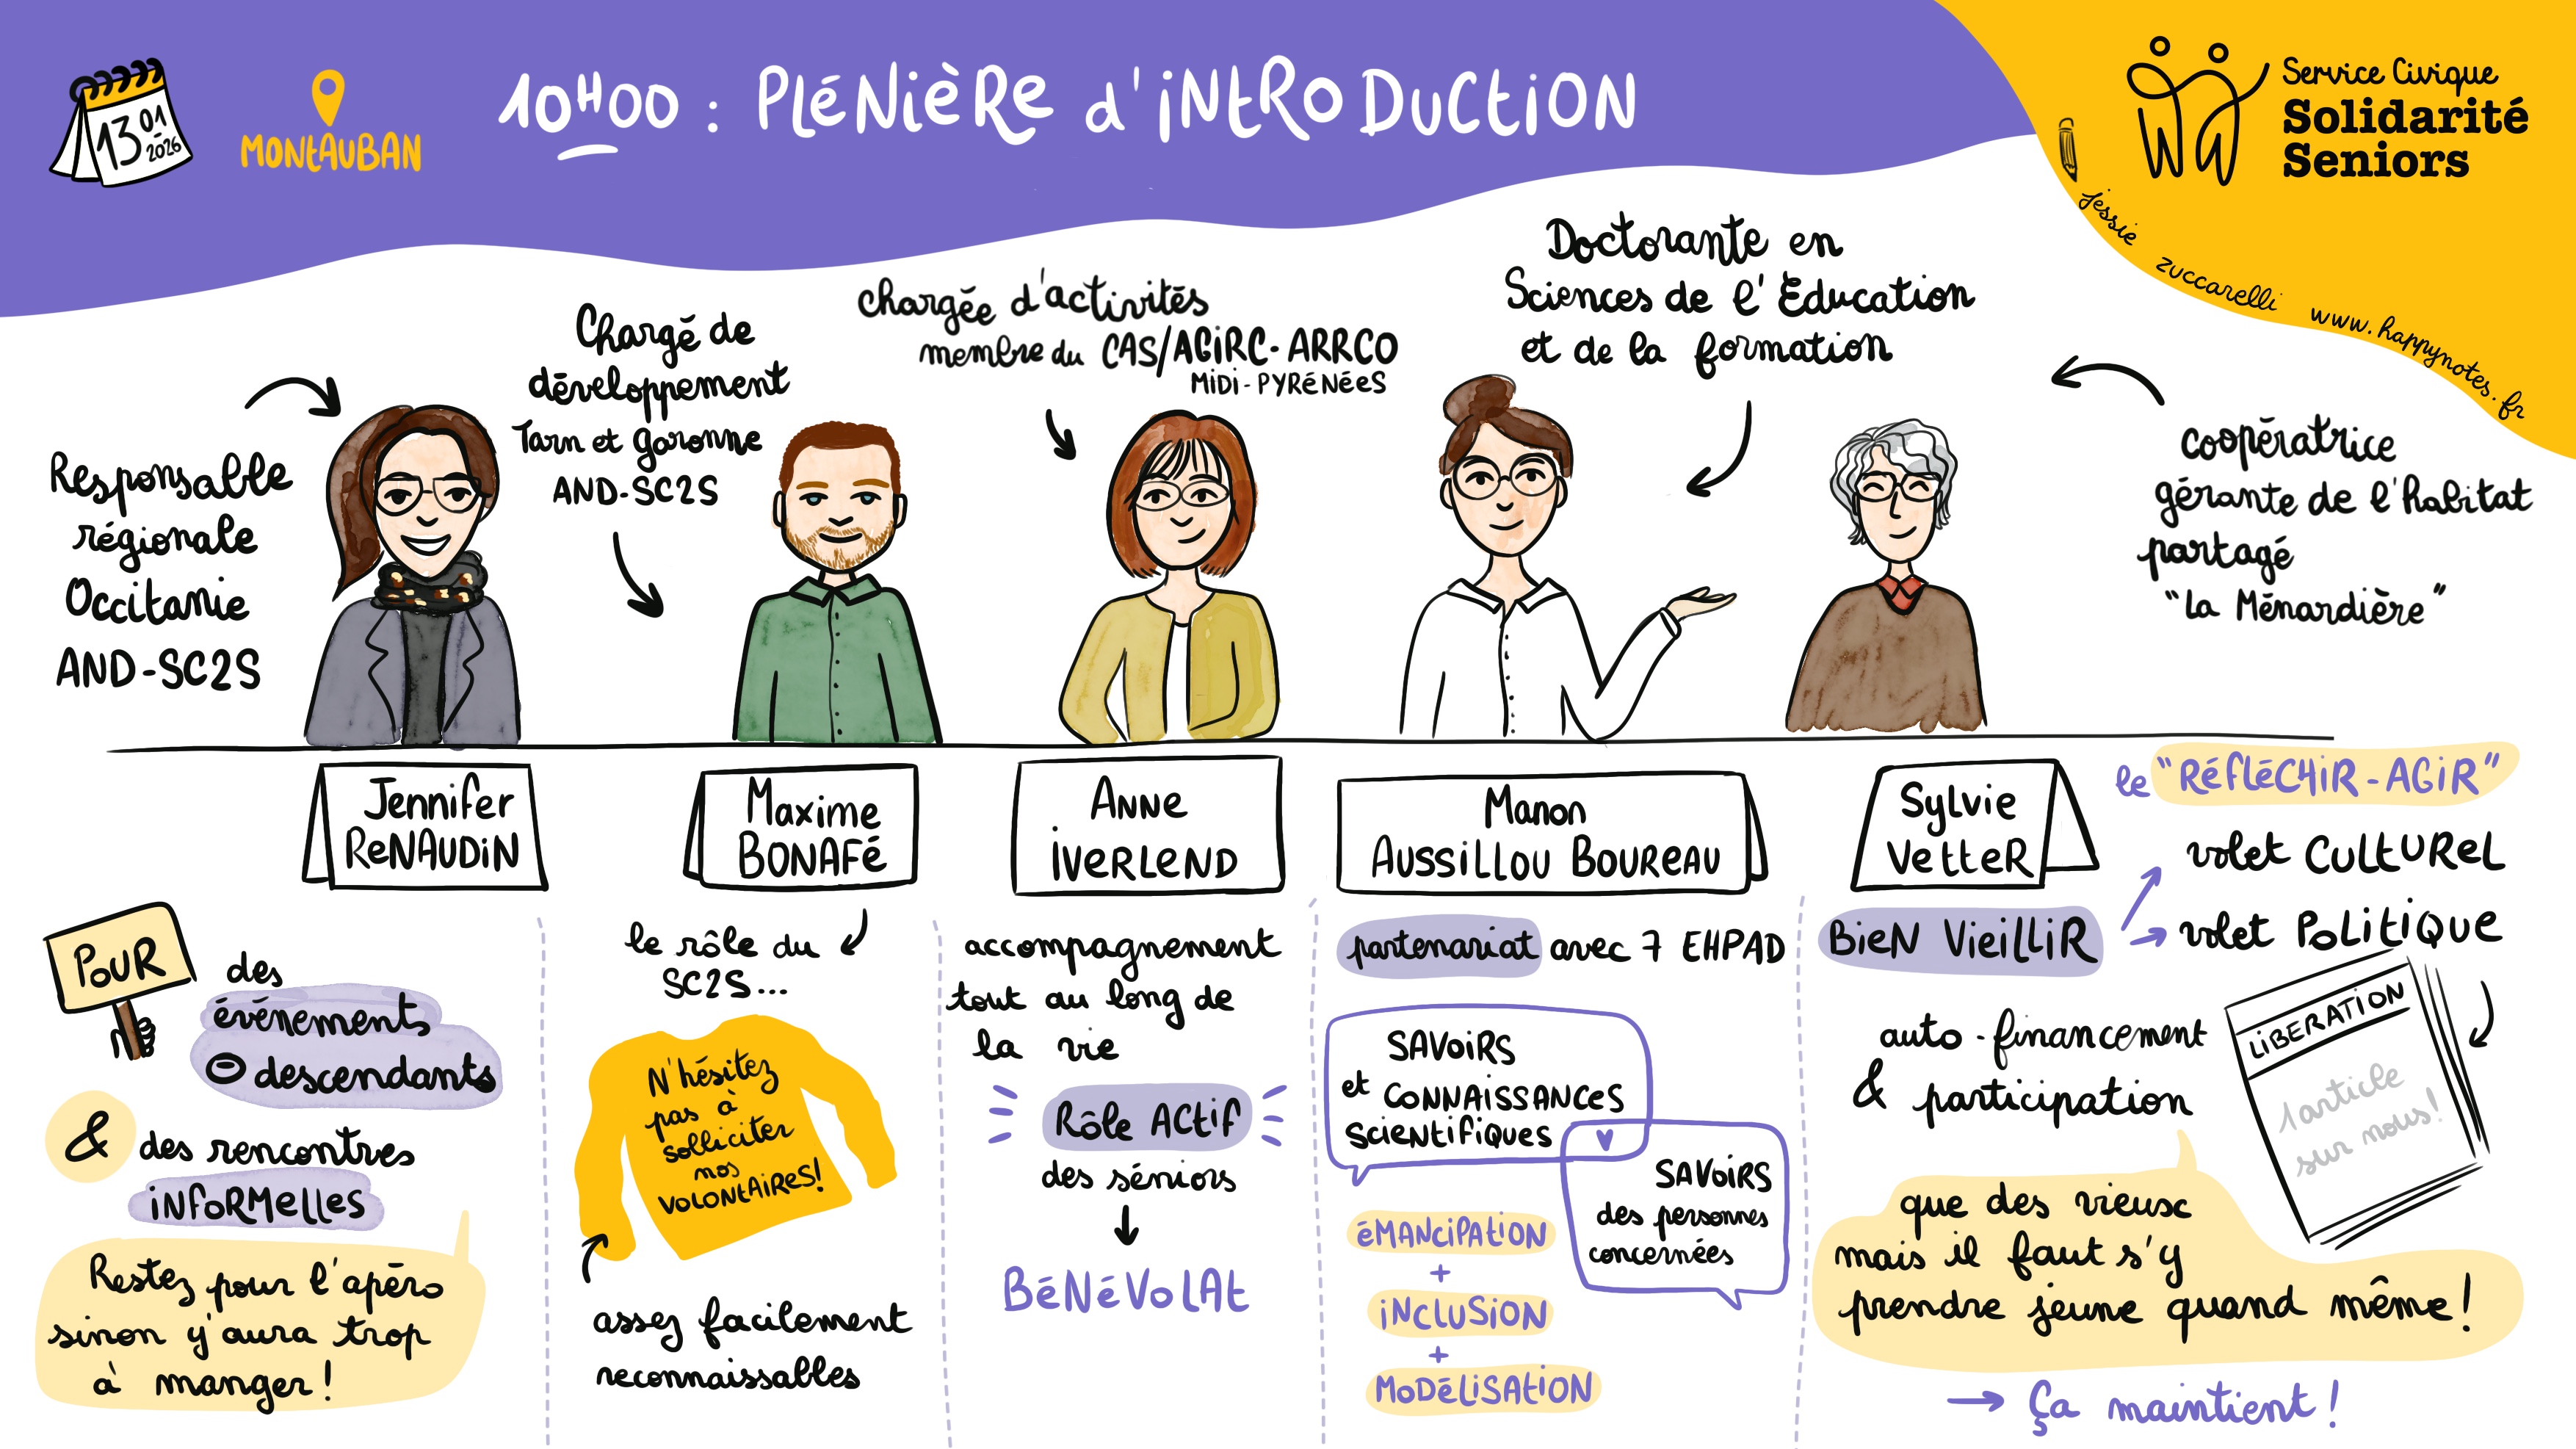 13
01
2026
MONTAUBAN
10H00 : PLÉNIÈRE d'INTRODUCTION
Service Civique
Solidarité
Seniors
jessie zuccarelli www.happynotes.fr
Responsable
régionale
Occitanie
AND-SC2S
Chargé de
développement
Tarn et Garonne
AND-SC2S
chargée d'activités
membre du CAS/AGIRC-ARRCO
MIDI-PYRÉNÉES
Doctorante en
Sciences de l'Éducation
et de la formation
coopératrice
gérante de l'habitat
partagé
"La Ménardière"
Jennifer
RENAUDIN
Maxime
BONAFÉ
ANNE
IVERLEND
Manon
AUSSILLOU BOUREAU
Sylvie
VETTER
POUR
des
événements
⊖ descendants
& des rencontres
INFORMELLES
Restez pour l'apéro
sinon y'aura trop
à manger !
le rôle du
SC2S...
N'hésitez
pas à
solliciter
nos
VOLONTAIRES!
assez facilement
reconnaissables
accompagnement
tout au long de
la vie
Rôle ACTIF
des séniors
BÉNÉVOLAT
partenariat avec 7 EHPAD
SAVOIRS
et CONNAISSANCES
SCIENTIFIQUES
SAVOIRS
des personnes
concernées
ÉMANCIPATION
+
INCLUSION
+
MODÉLISATION
le "RÉFLÉCHIR-AGIR"
volet CULTUREL
BIEN VIEILLIR
volet POLITIQUE
auto-financement
& participation
LIBERATION
1 article
sur nous!
que des vieux
mais il faut s'y
prendre jeune quand même !
→ Ça maintient !